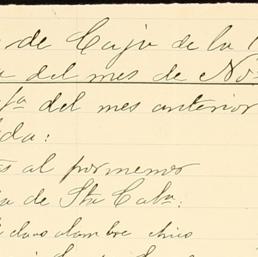 de Caja de la
del mes de No
fa del mes anterior
da:
as al pormenor
de Sta Cala.
clavo alambre chico